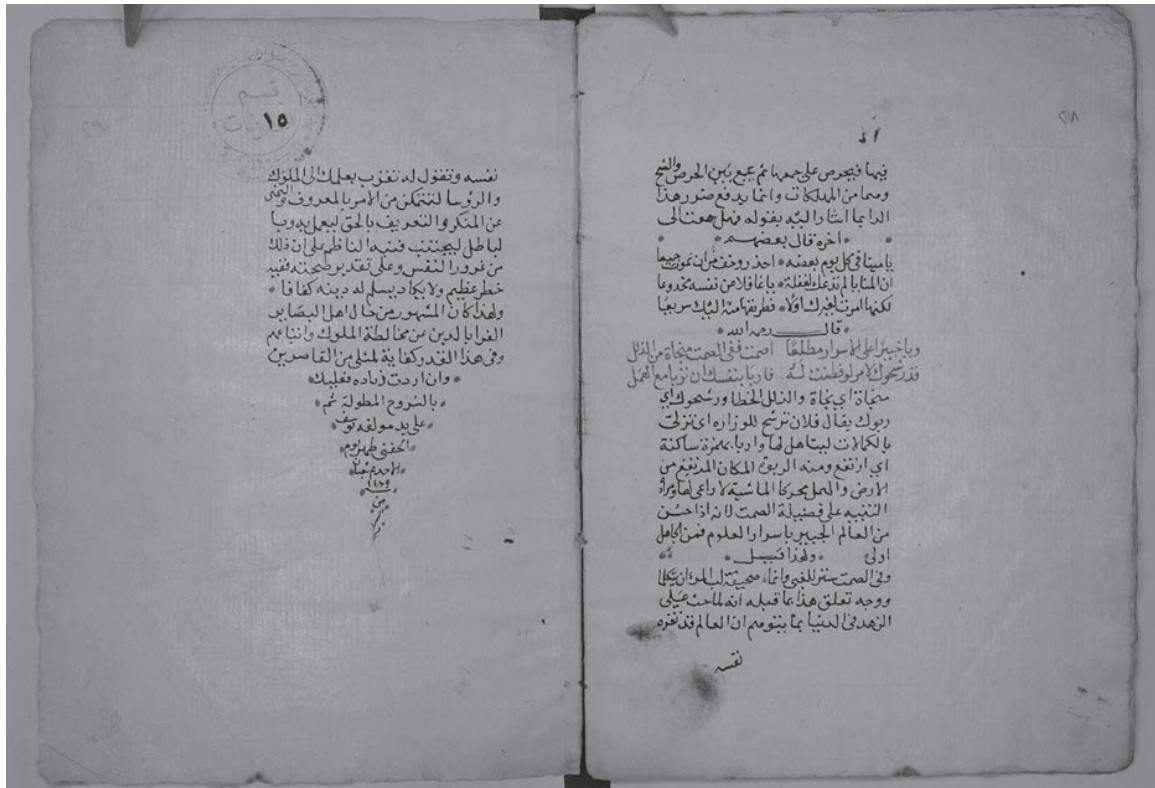 ٢٨
فيها فيحرص على جمعها ثم يجمع بين الحرص والشح
وهما من المهلكات وانما يدفع ضرر هذا
الدا بما اشار اليه بقوله فهل سمعت الى
اخره قال بعضهم
يا ميتا في كل يوم بعضه احذر وخف من ان تموت جميعا
ان المنايا لم تدعك لغفلة يا غافلا من نفسه مخدوعا
لكنها امرت لغيرك اولا فطريقها منه اليك سريعا
قال رحمه الله
ويا خبيرا على الاسرار مطلعا اصمت ففي الصمت منجاة من الزلل
قد رشحوك لامر لو فطنت له فاربا بنفسك ان ترعى مع الهمل
منجاة اي نجاة والزلل الخطا ورشحوك اي
ربوك يقال فلان ترشح للوزاره اي تربى
بالكمالات ليتاهل لها واربا بهمزة ساكنة
اي ارتفع ومنه الربوة المكان المرتفع من
الارض والهمل محركا الماشية لا راعى لها ومراده
التنبيه على فضيلة الصمت لانه اذا حسن
من العالم الخبير باسرار العلوم فمن الجاهل
اولى ولهذا قيل
وفي الصمت ستر للغبي وانما صحيفة لب المرء ان يتكلما
ووجه تعلق هذا بما قبله انه لما حث على
الزهد في الدنيا بما يتوهم ان العالم قد تغره
نفسه
٢٩
قسم
١٥
نفسه وتقول له تقرب بعلمك الى الملوك
والرؤسا لتتمكن من الامر بالمعروف والنهى
عن المنكر والتعريف بالحق ليعمل به وبا
لباطل ليجتنب فنبه الناظم على ان ذلك
من غرور النفس وعلى تقدير صحته ففيه
خطر عظيم ولا يكاد يسلم له دينه كفافا
ولهذا كان المشهور من حال اهل البصاير
الفرار بالدين عن مخالطة الملوك واتباعهم
وفي هذا القدر كفاية لمثلى من القاصرين
وان اردت زياده فعليك
بالشروح المطولة تم
على يد مولفه يوسف
الحفنى ظهر يوم
الاحد